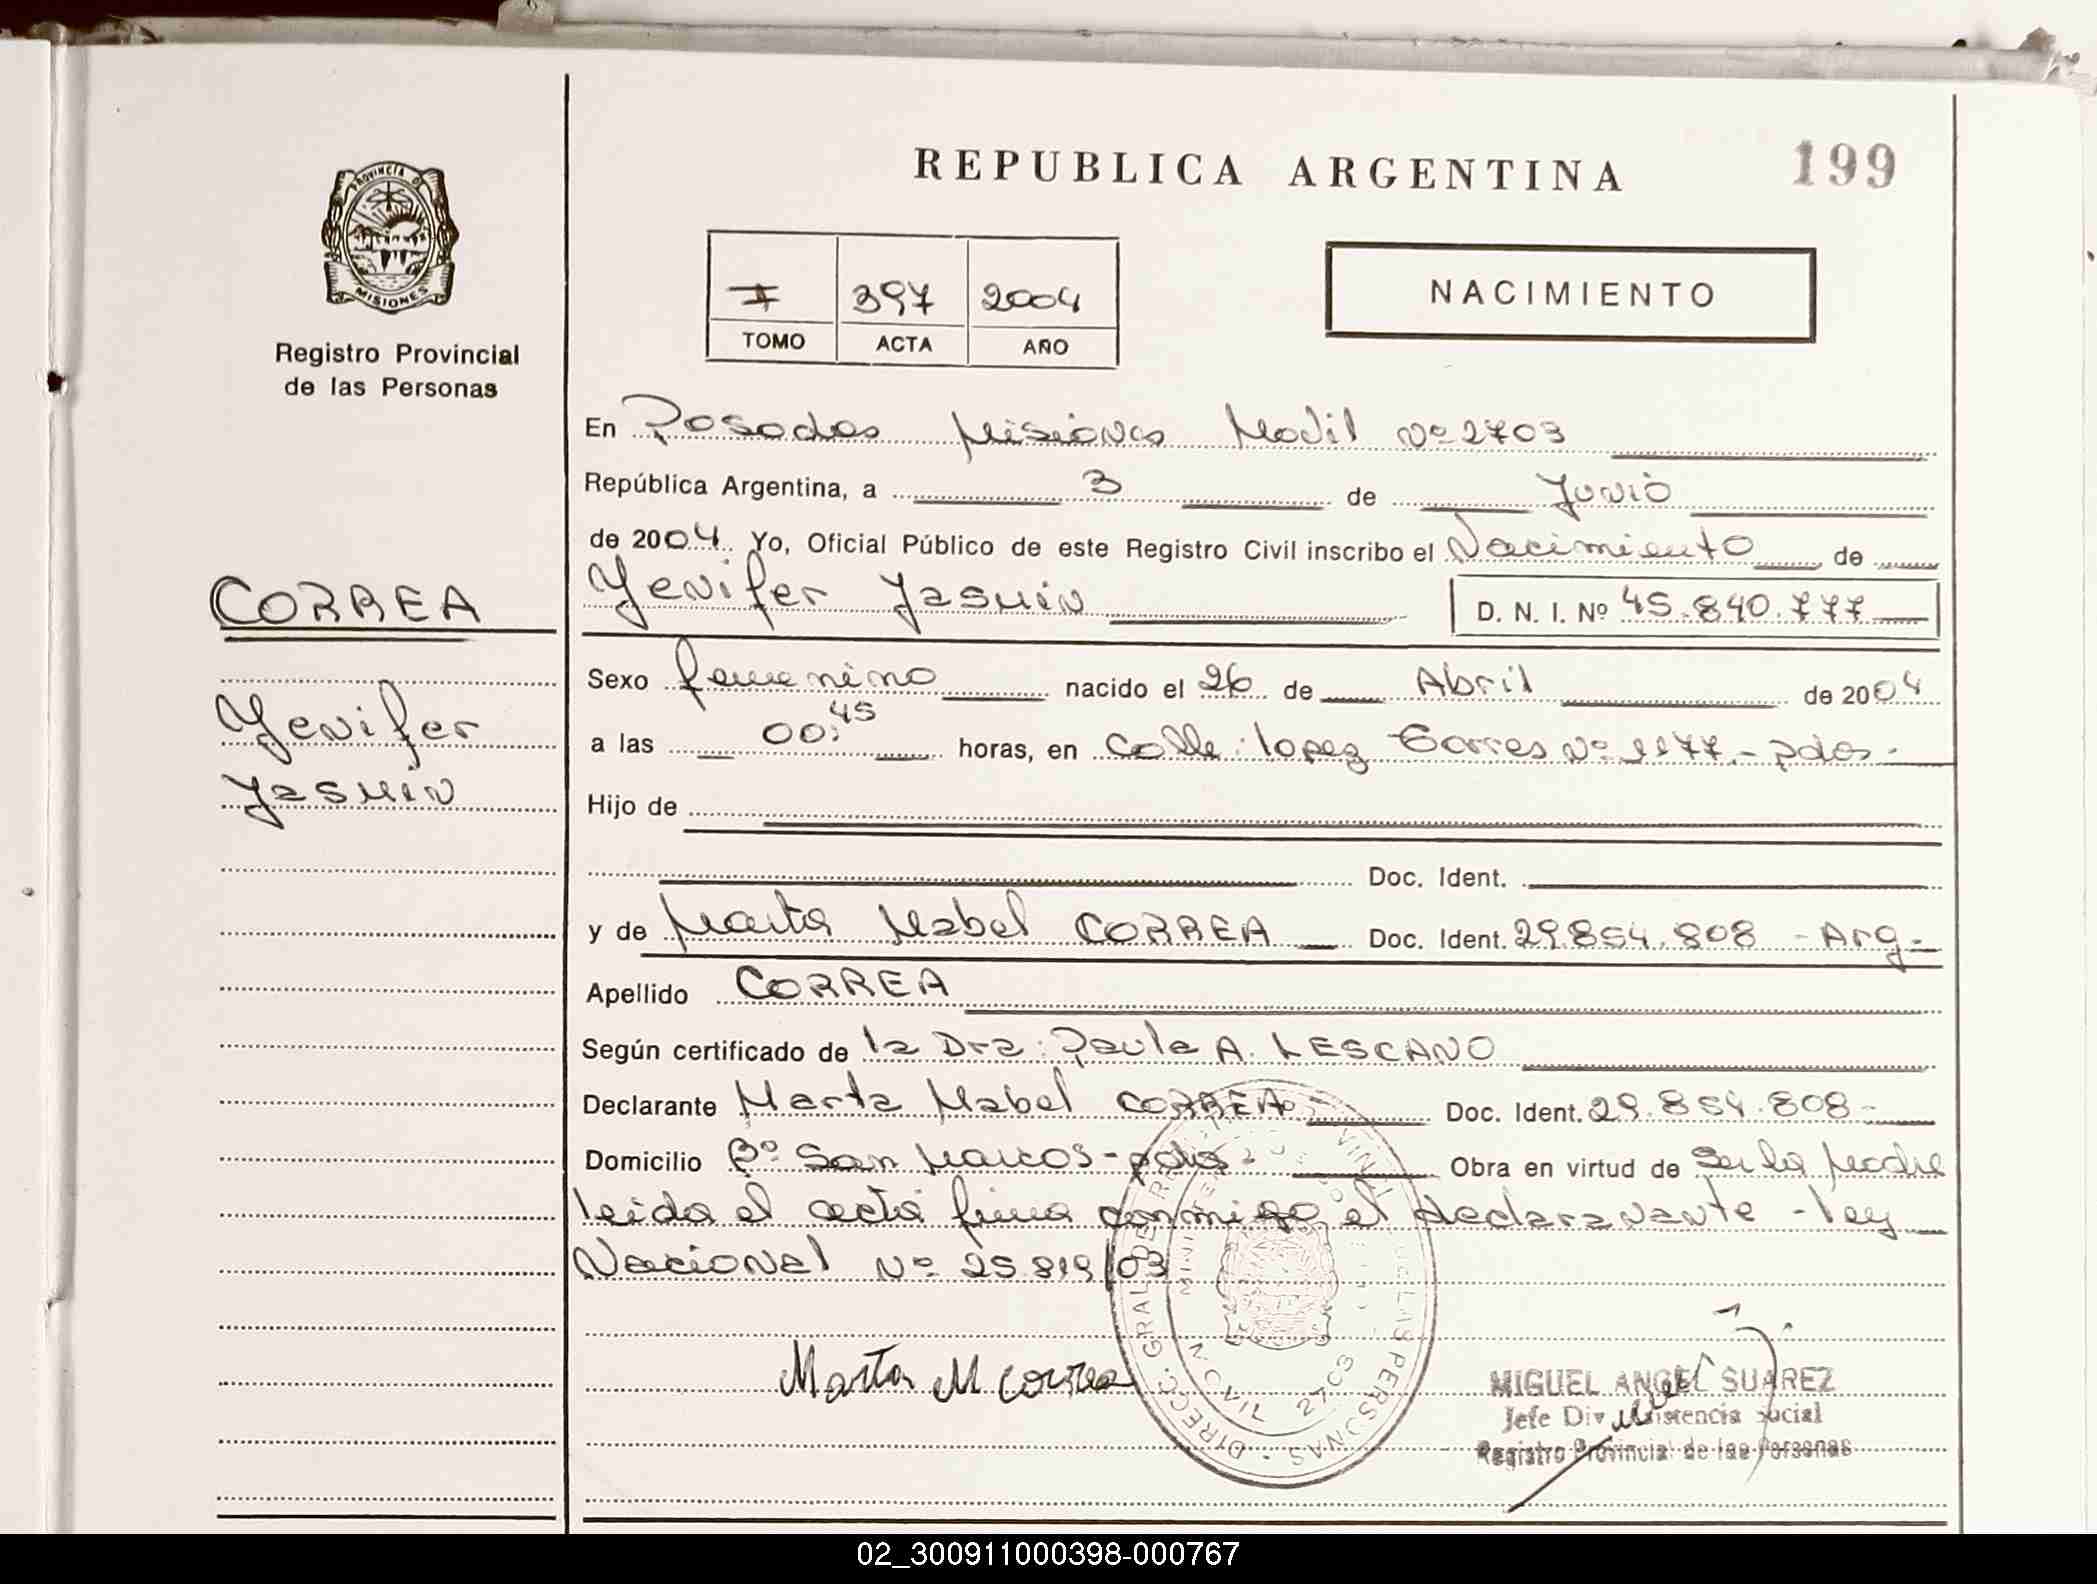 REPUBLICA ARGENTINA
199
PROVINCIA DE
MISIONES
Registro Provincial
de las Personas
I 397 2004
TOMO ACTA AÑO
NACIMIENTO
En Posadas Misiones Movil Nº 2703
República Argentina, a 3 de Junio
de 2004. Yo, Oficial Público de este Registro Civil inscribo el Nacimiento de
Yenifer Yasmin D. N. I. Nº 45.840.777
CORREA
Yenifer
Yasmin
Sexo femenino nacido el 26 de Abril de 2004
a las 00:45 horas, en Calle: lopez Torres Nº 1177.- pdas.-
Hijo de
Doc. Ident.
y de Marta Mabel CORREA Doc. Ident. 29.854.808 - Arg-
Apellido CORREA
Según certificado de la Dra: Paula A. LESCANO
Declarante Marta Mabel CORREA.- Doc. Ident. 29.854.808-
Domicilio Bº San Marcos - pdas- Obra en virtud de Ser la Madre
leida el acta firma conmigo el declaranante - ley
Nacional Nº 25.819/03
Marta M Correa
MOVIL 2703
MIGUEL ANGEL SUAREZ
Jefe Div Asistencia Social
Registro Provincial de las Personas
02_300911000398-000767